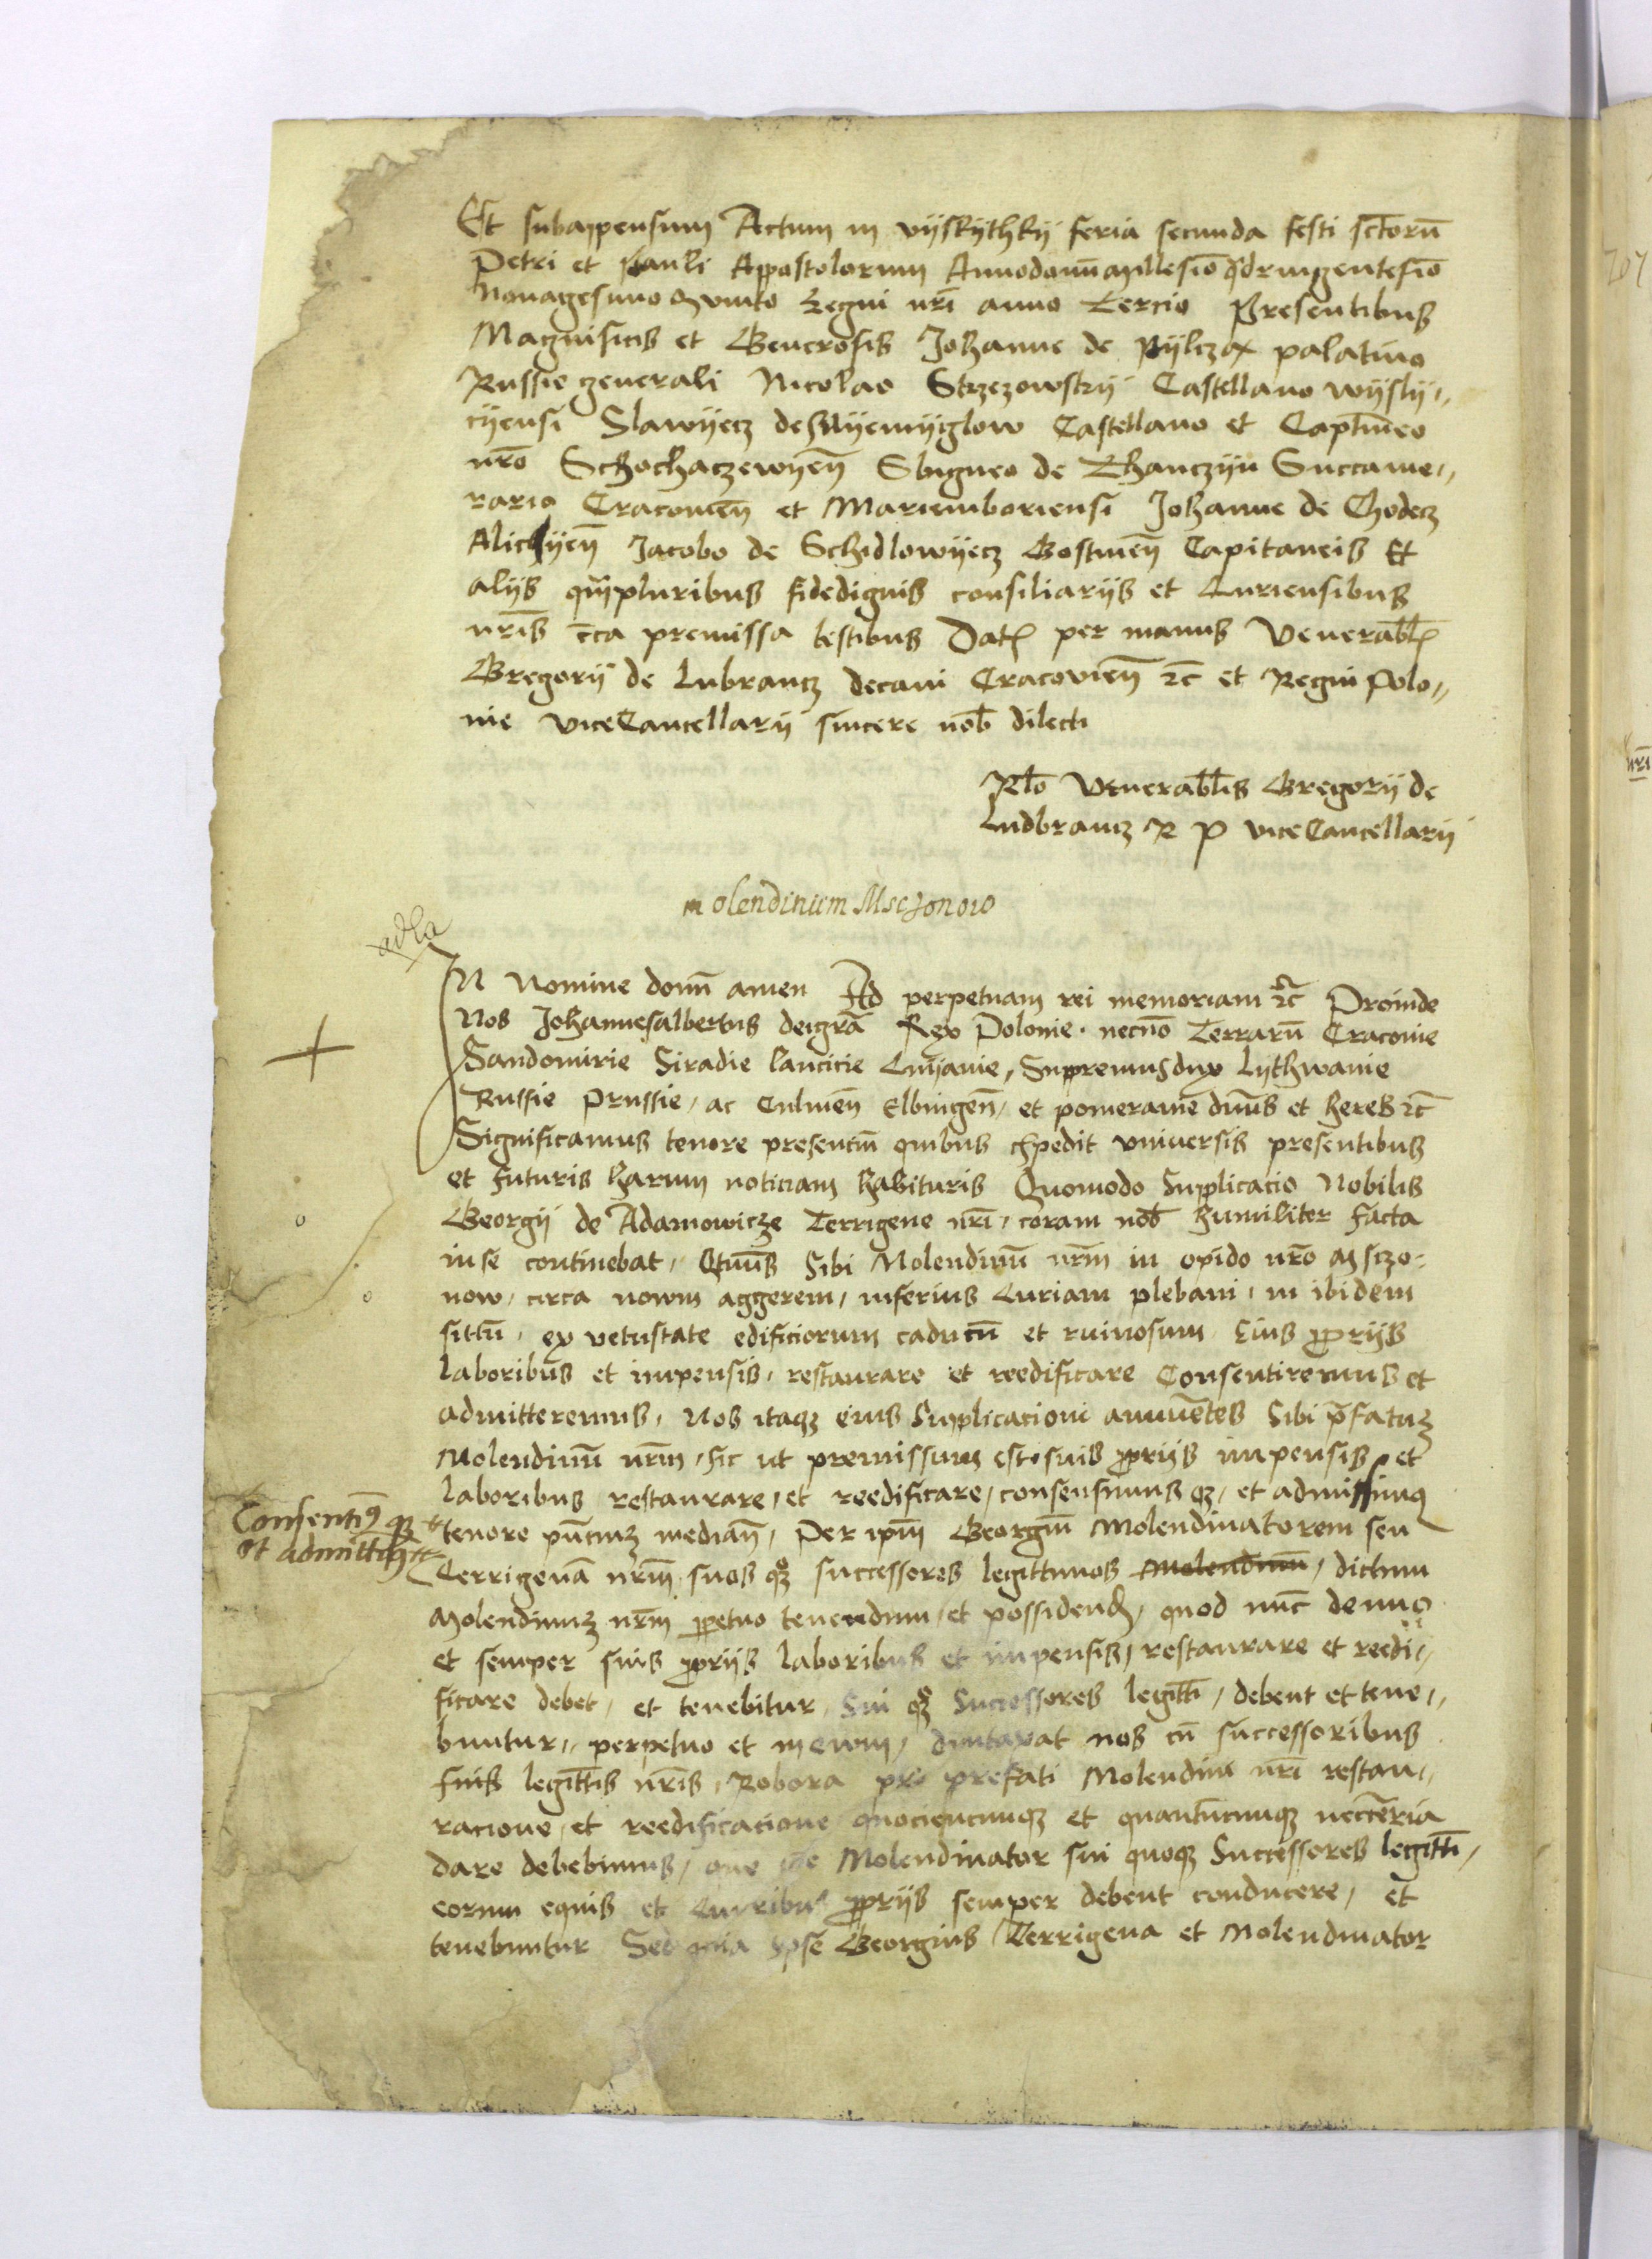 Et subappensum Actum in vyskythky feria secunda festi sctorū
Petri et Pauli Appostolorum Annodomī millesīo qdringentesīo
Nonagesimo Quinto Regni nrī anno Tercio Presentibus
Magnificis et Generosis Johanne de Pylcza palatino
Russie generali Nicolao Strzezowsky Castellano wysly„
cyensi Slawyecz de Nyemyglow Castellano et Captīneo
nrō Schochaczewyeñ Sbigneo de Thanczyn Succame„
rario Cracovieñ et Mariemboriensi Johanne de Chodecz
Alicyeñ Jacobo de Schidlowyecz Gostineñ Capitaneis Et
alijs qmpluribus fidedignis consiliarijs et Curiensibus
nrīs cca premissa testibus Dat per manus Venerabl
Gregorij de Lubrancz decani Cracovieñ rc et Regni Polo„
nie viceCancellarij sincere nob dilecti
Rlō Venerablis Gregorij de
Ludbrancz R P viceCancellarij
molendinum Msczonow
adla
IN Nomine domī amen Ad perpetuam rei memoriam rc Proinde
Nos Johannesalbertus deigrā Rex Polonie necnō Terrarū Cracovie
Sandomirie Siradie lancicie Cuyavie, Supremusdux Lythwanie
Russie Prussie, ac Culmeñ Elbingeñ, et pomeranie dnūs et heres rc
Significamus tenore presentiū quibus expedit vniversis presentibus
et futuris harum noticiam habituris Quomodo Supplicacio Nobilis
Georgij de Adamowicze Terrigene nrī, coram nob humiliter facta
in se continebat, Qtnūs sibi Molendinū nrm in opido nrō Msczo:
now, circa novum aggerem, inferius Curiam plebani, in ibidem
sitū, ex vetustate edificiorum caducū et ruinosum Eius prorijs
laboribus et impensis, restaurare et reedificare Consentiremus et
admitteremus, Nos itaq eius supplicacioni annuētes sibi pfatuʒ
Molendinū nrm, sic ut premissum est, suis prorijs impensis et
laboribus restaurare, et reedificare, consensimus q, et admissimus
Consentiꝯ q
et admittiꝯ
tenore pñtiuʒ mediañ, Per ipm Georgiū Molendinatorem seu
Terrigenā nrm suos q successores legittimos Molendinū, dictum
Molendinuʒ nrm ppetuo tenendum, et possidend, quod nūc denuo
et semper suis prorijs laboribus et impensis, restaurare et reedi„
ficare debet, et tenebitur, Sui q Successores legitti, debent et tene„
buntur„ perpetuo et in evum, dumtaxat nos cū successoribus
suis legittis nrīs, Robora pro prefati Molendini nrī restau„
racione, et reedificacione quociencunq et quantūcunq neccēria
dare debebimus, que ipe Molendinator sui quoq Successores legitti,
eorum equis et Curribus prorijs semper debent conducere, et
tenebuntur Sed quia ipse Georgius Terrigena et Molendinator